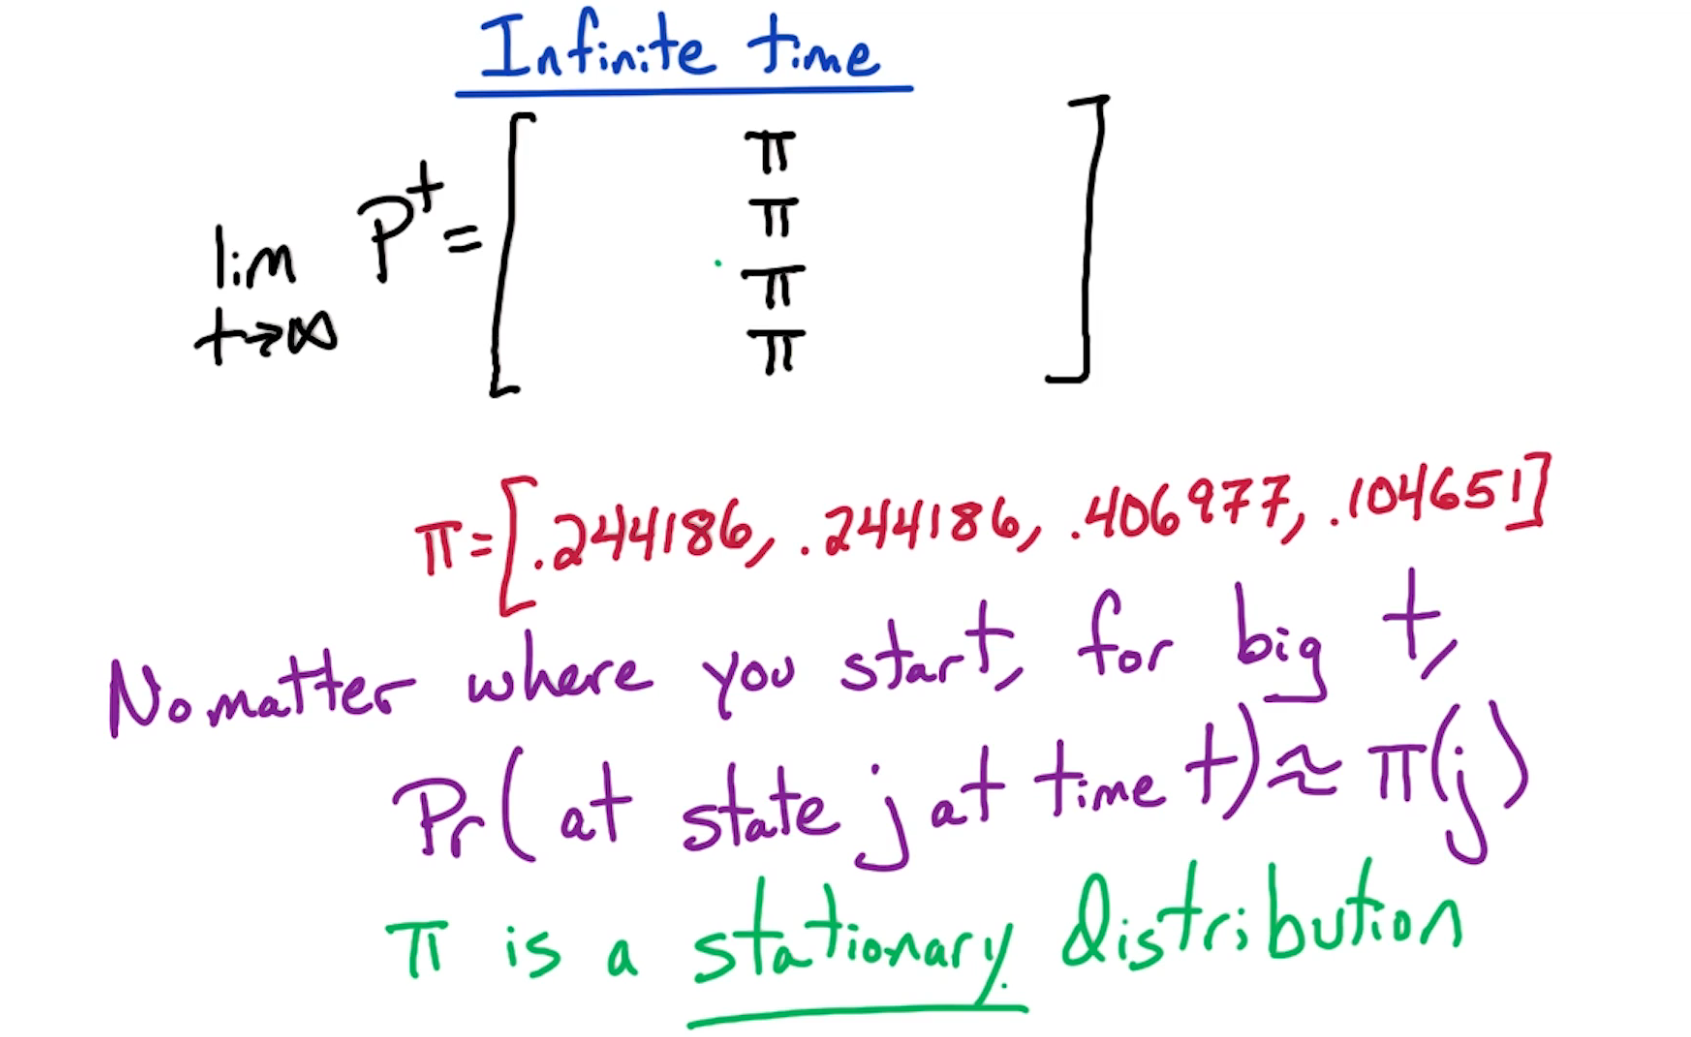 Infinite time
lim P^t = [ π
t→∞ π
π
π ]
π = [.244186, .244186, .406977, .104651]
No matter where you start, for big t,
Pr(at state j at time t) ≈ π(j)
π is a stationary distribution